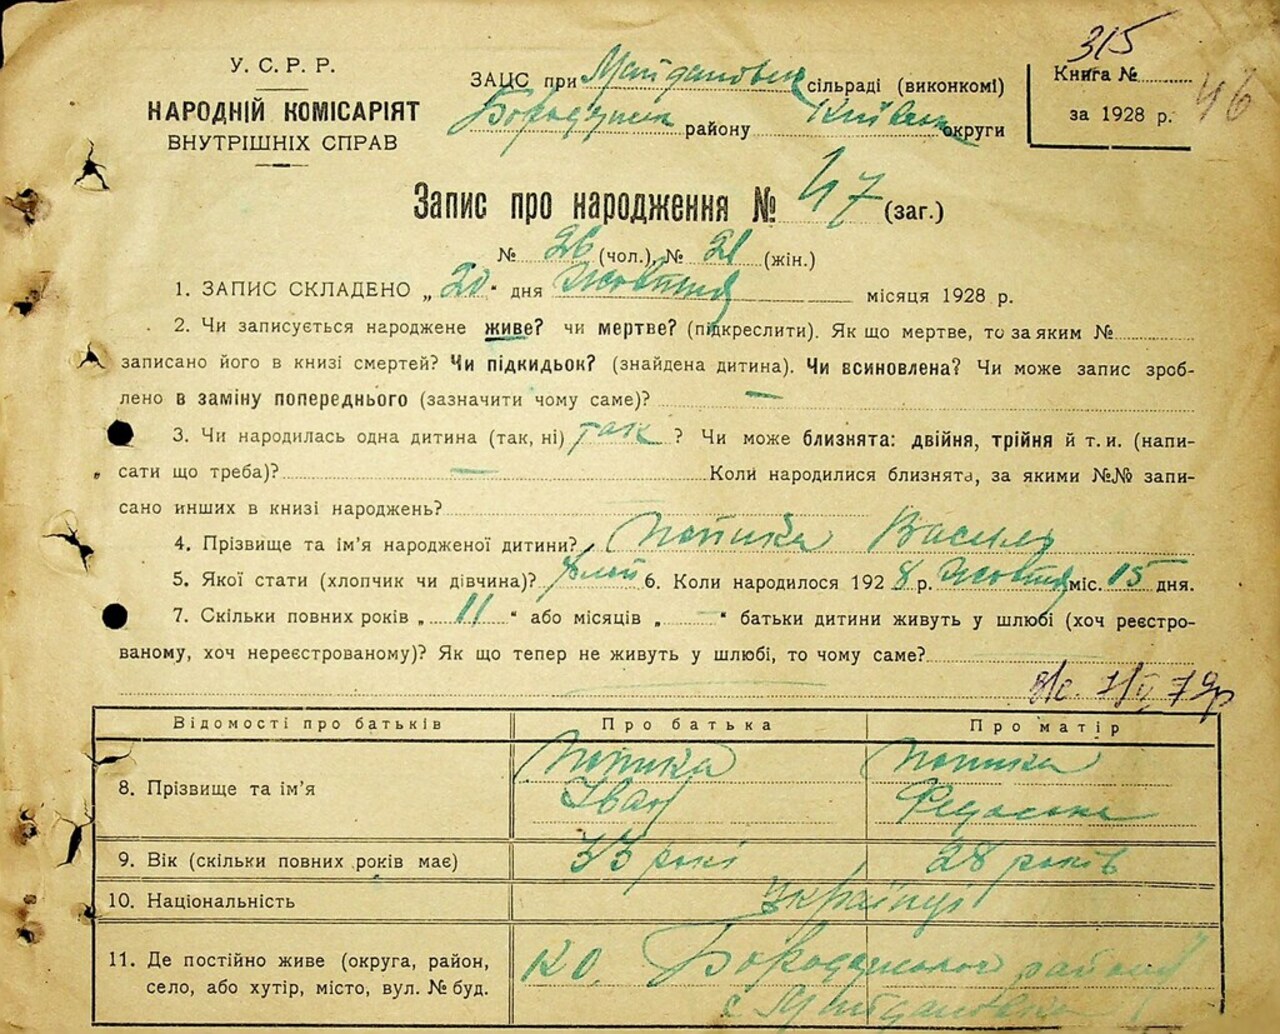 315
У. С. Р. Р.
НАРОДНІЙ КОМІСАРІЯТ
ВНУТРІШНІХ СПРАВ
ЗАЦС при Майдановск сільраді (виконкомі)
Бородянск району Київськ округи
Книга №
за 1928 р.
46
Запис про народження № 47 (заг.)
№ 26 (чол.), № 21 (жін.)
1. ЗАПИС СКЛАДЕНО „20" дня Жовтня місяця 1928 р.
2. Чи записується народжене живе? чи мертве? (підкреслити). Як що мертве, то за яким №
записано його в книзі смертей? Чи підкидьок? (знайдена дитина). Чи всиновлена? Чи може запис зроб-
лено в заміну попереднього (зазначити чому саме)? —
3. Чи народилась одна дитина (так, ні) так ? Чи може близнята: двійня, трійня й т. и. (напи-
сати що треба)? — Коли народилися близнята, за якими №№ запи-
сано инших в книзі народжень?
4. Прізвище та ім'я народженої дитини? Василь
5. Якої стати (хлопчик чи дівчина)? 6. Коли народилося 1928 р. Жовтня міс. 15 дня.
7. Скільки повних років „11" або місяців „—" батьки дитини живуть у шлюбі (хоч реєстро-
ваному, хоч нереєстрованому)? Як що тепер не живуть у шлюбі, то чому саме?
Відомості про батьків Про батька Про матір
8. Прізвище та ім'я
Іван
9. Вік (скільки повних років має) 33 рокі 28 років
10. Національність Українці
11. Де постійно живе (округа, район, село, або хутір, місто, вул. № буд. К.О. Бородянського району
с. Майдановка